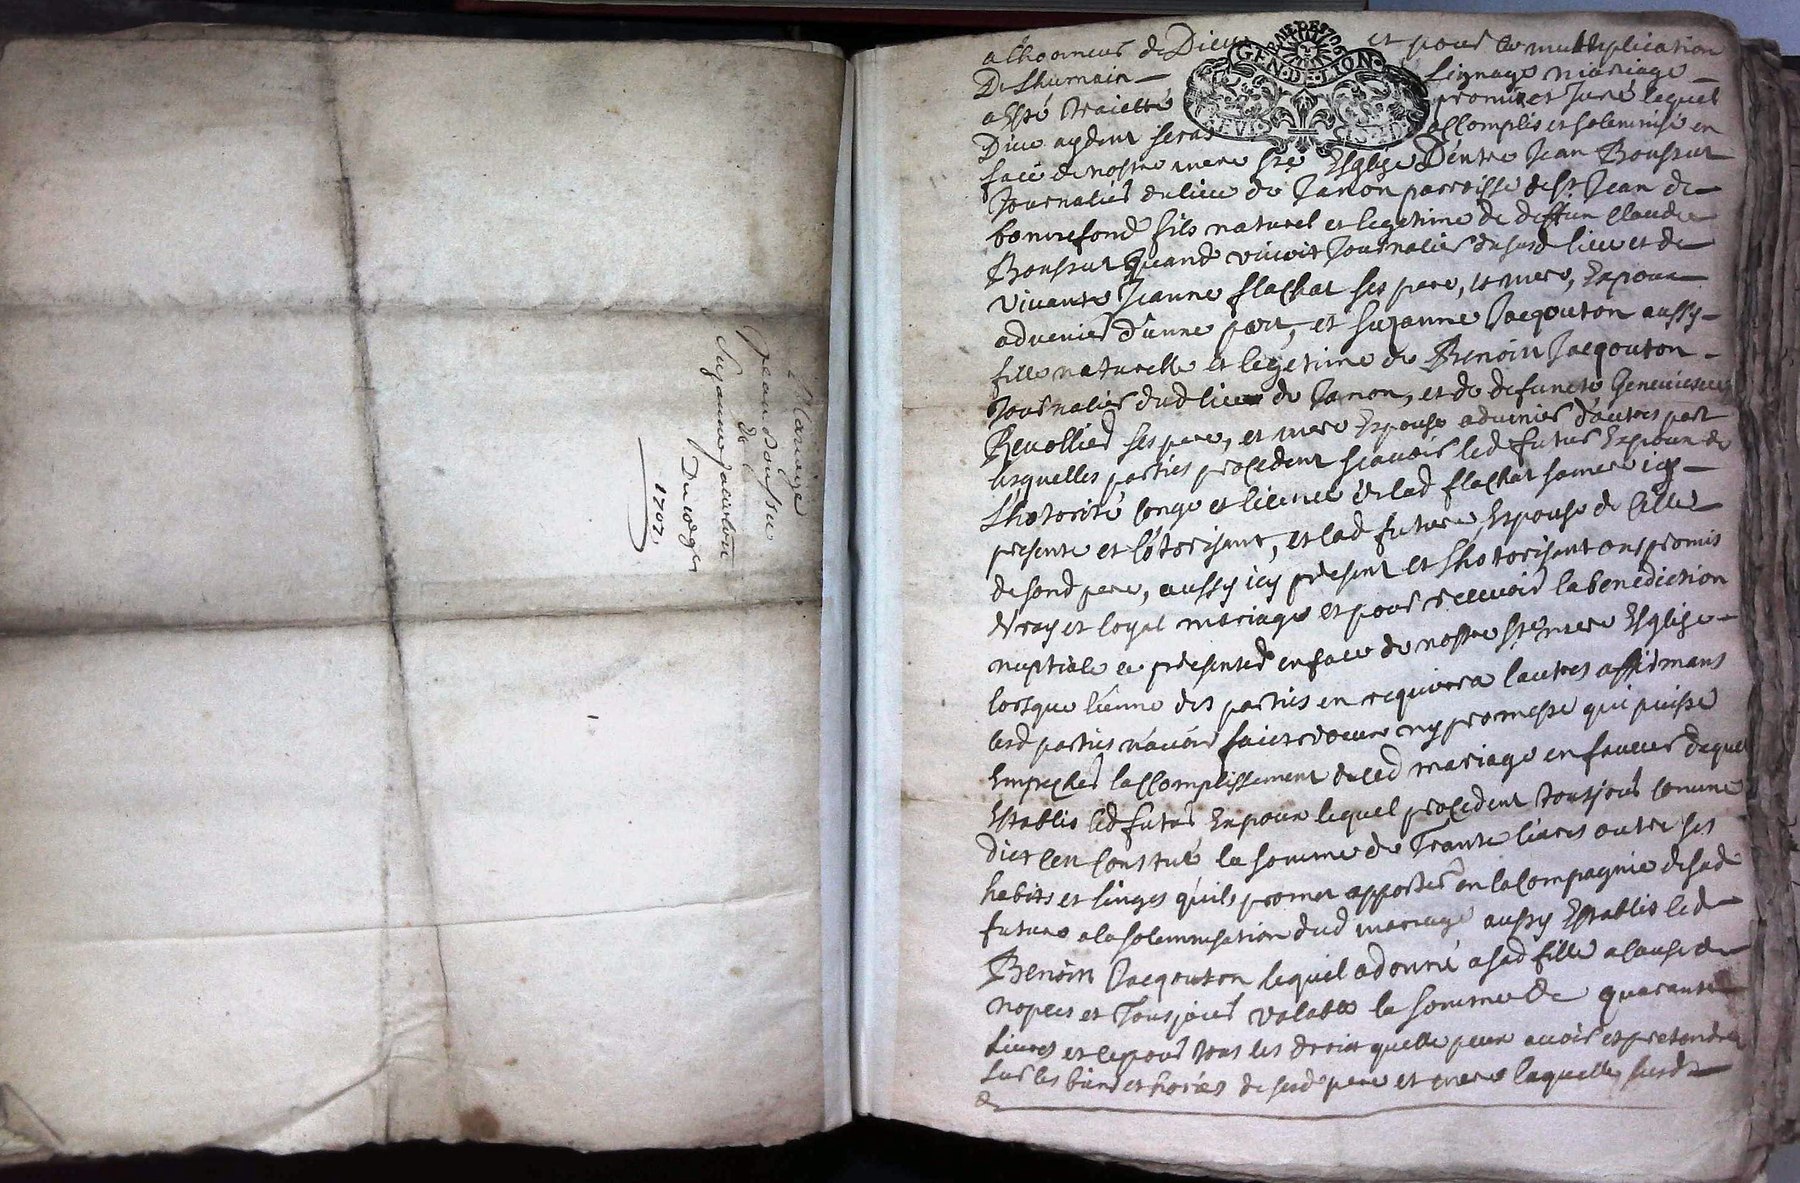 Mariage
Jean Boussu
&
Suzanne Jacouton
Du
1707
GEN·DE·LION·
a lhonneur de Dieu et pour la multiplication
De Lhumain lignage mariage
a esté traietté promis et Juré lequel
Dieu aydent seras accomplis et solemnisé en
face de nostre mere ste Esglize Dentre Jean Boussut
Journalier du lieu de Janon parroisse de st Jean de
bonnefond fils naturel et legetime de deffun Claude
Boussut Quand vivoit Journalier dususd lieu et de
vivante Jeanne flachat ses pere, et mere, Expoux
advenier d'unne part, et suzanne Jacqouton aussy
fille naturelle et legetime de Benoin Jacqouton
Journalier dud lieu de Janon, et de defuncte Genevieve
Revollier ses pere, et mere Espouse advenier d'autres part
lesquelles parties procedent scavoir led futur Expoux de
Lhotorité conge et licence de lad flachat sa mere icy
presente et l'otorisant, et lad future Espouse de celle
de sond pere, aussy icy present et Lhotorisant ons promis
vray et loyal mariage et pour recevoir la benediction
nuptiale ce presenter en face de nostre ste mere Esglize
lorsque l'unne des parties en requirera lautres affirmans
lesd parties n'avoir faict voeux ny promesse qui puisse
Empecher laccomplissement duced mariage en faveur duquel
Establis led futur Expoux lequel procedent tousjours comme
dict cen constitué la somme de Trante livres outre ses
habits et linges qu'ils promet apporter en la compagnie de sad
future a la solemnisation dud mariage aussy Establis led
Benoin Jacqouton lequel a donné a sad fille a cause de
nopces et Tousjours valable la somme de quarante
Livres et ce pour tous les droict quelle peux avoir et pretendre
sur les biens et hoiries de sesd pere et mere laquelle susd